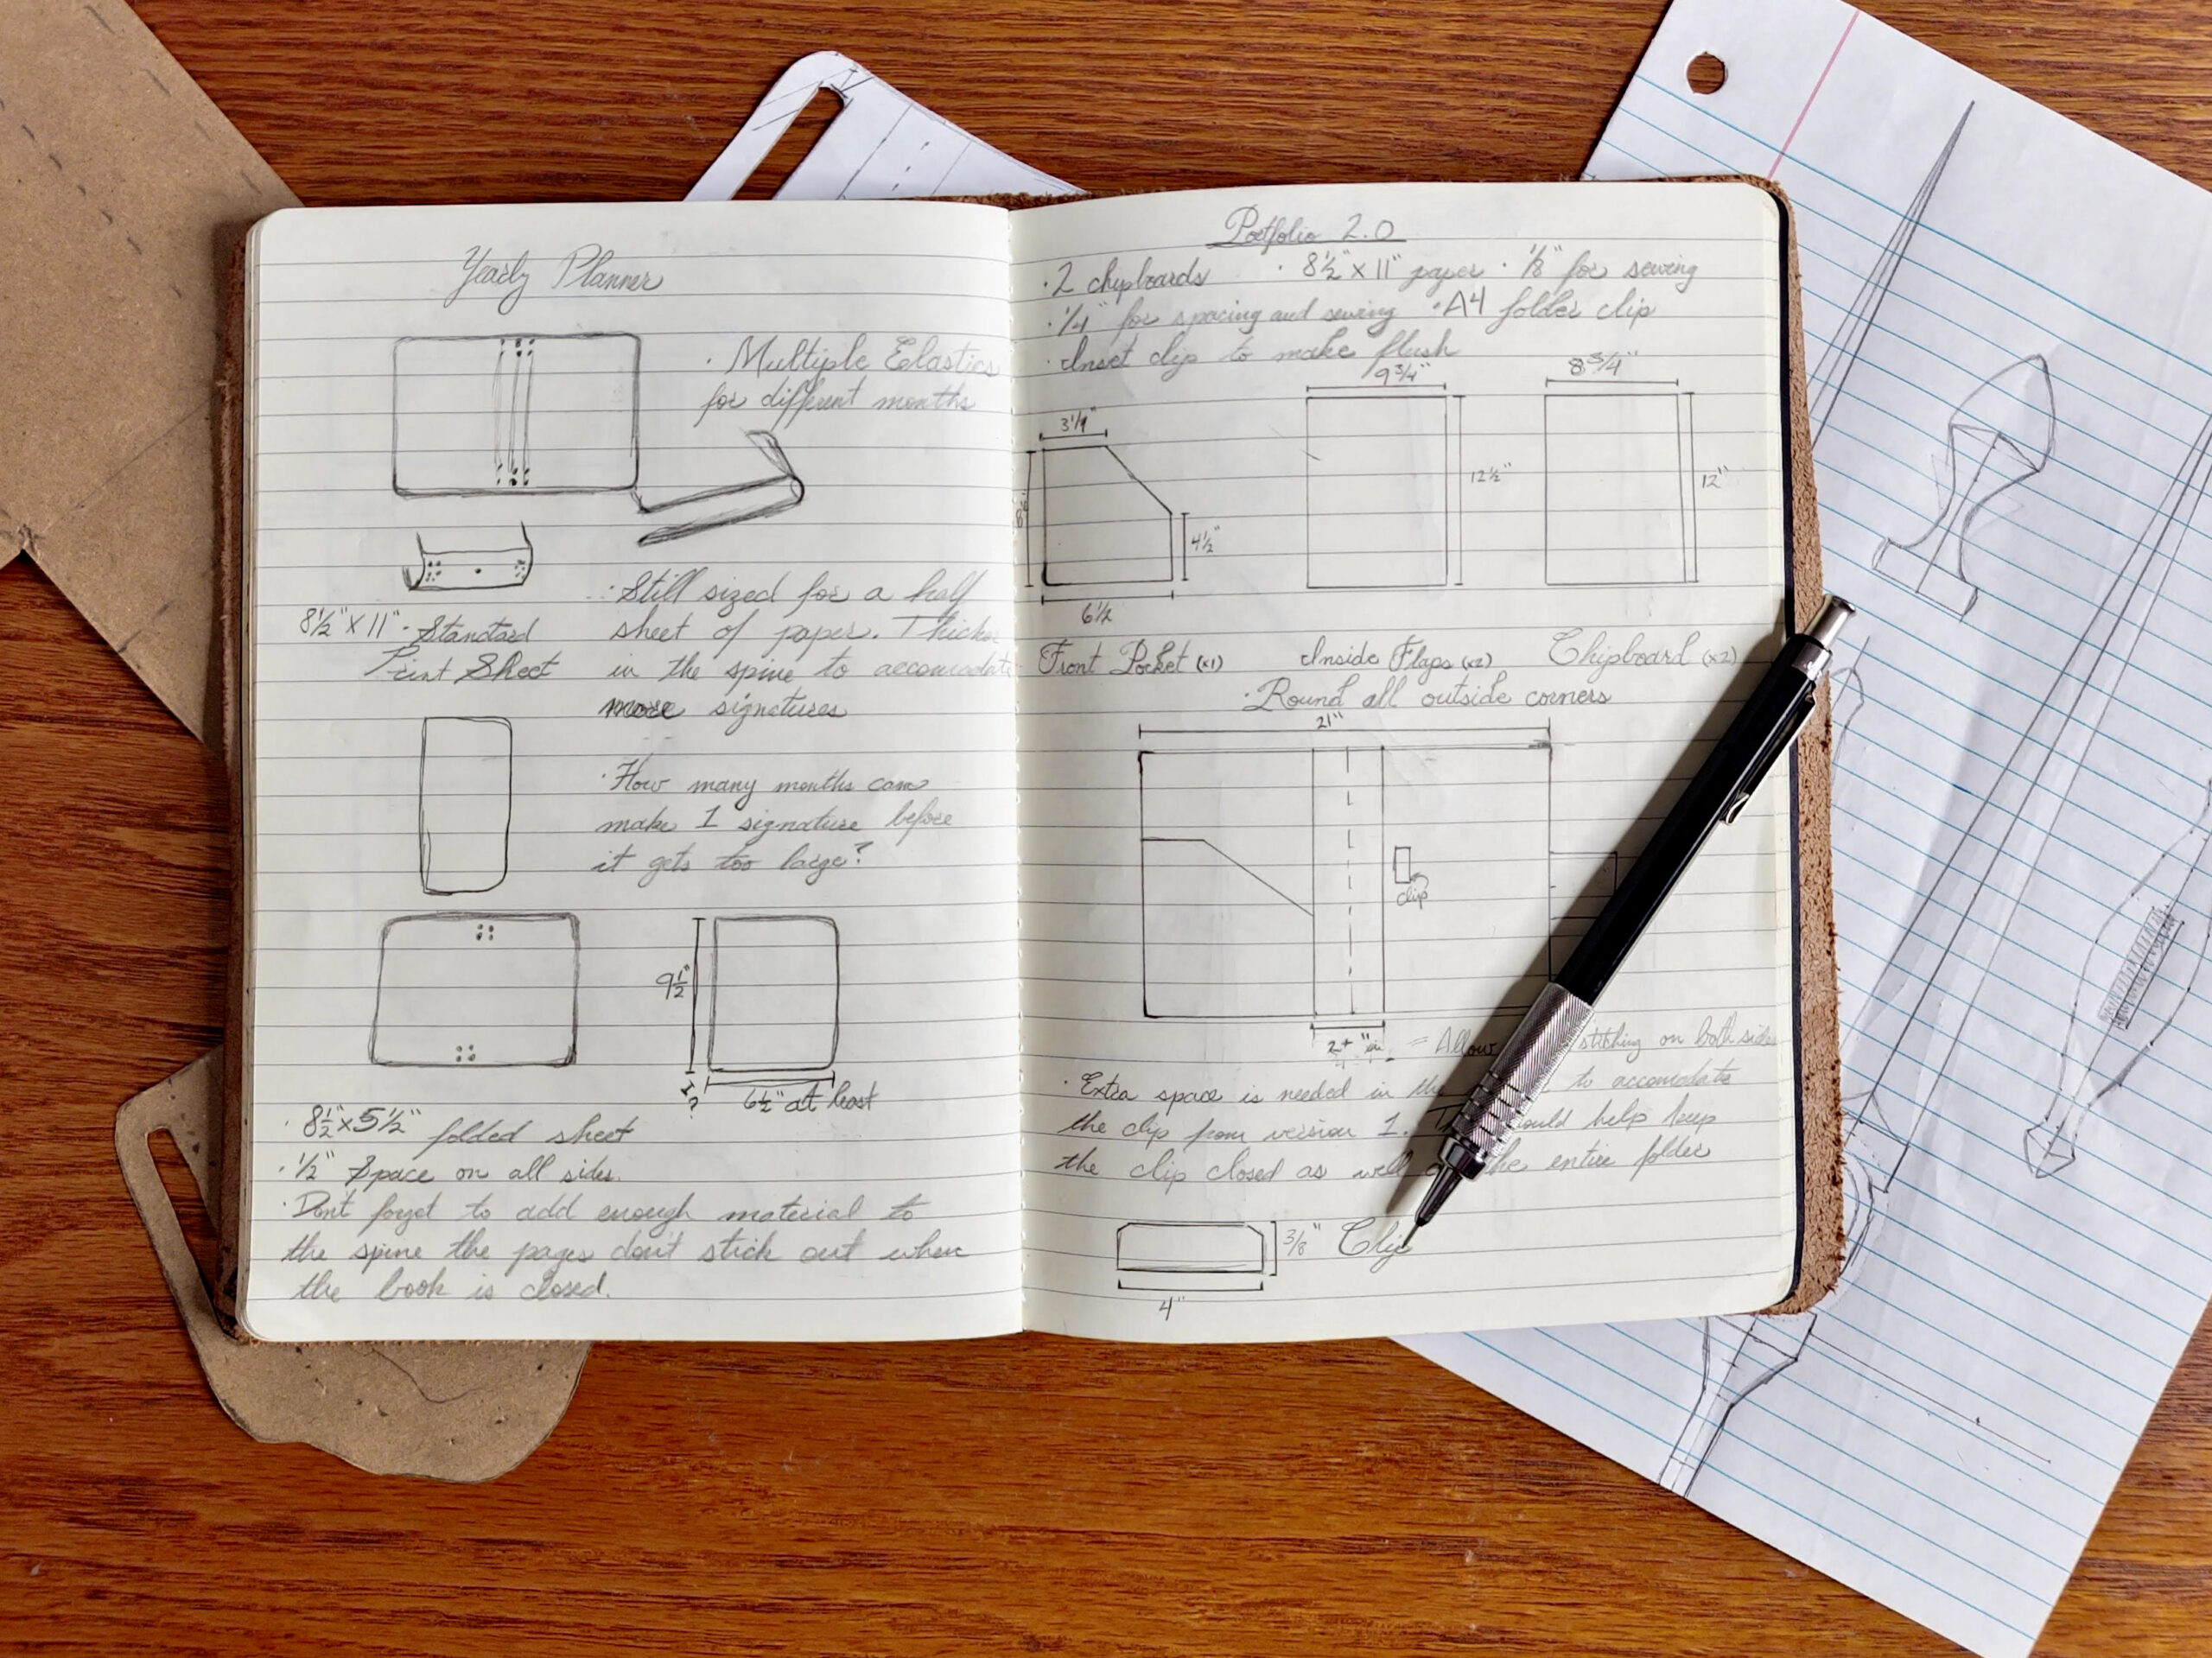 Yearly Planner
· Multiple Elastics
for different months
· Still sized for a half
sheet of paper. Thicker
in the spine to accomodate
more signatures
8½" X 11" · Standard
Print Sheet
· How many months can
make 1 signature before
it gets too large?
9½"
1
?
6½" at least
· 8½" x 5½" folded sheet
· ½" Space on all sides.
· Don't forget to add enough material to
the spine the pages don't stick out when
the book is closed.
Portfolio 2.0
· 2 chipboards · 8½" X 11" paper · ⅛" for sewing
· ¼" for spacing and sewing · A4 folder clip
· Inset clip to make flush
3¼"
4½"
6½
9¾"
12½"
8¾"
12"
Front Pocket (x1) Inside Flaps (x2) Chipboard (x2)
· Round all outside corners
21"
clip
2+ = Allow stitching on both sides
· Extra space is needed in the to accomodate
the clip from version 1. would help keep
the clip closed as well the entire folder
3/8" Clip
4"